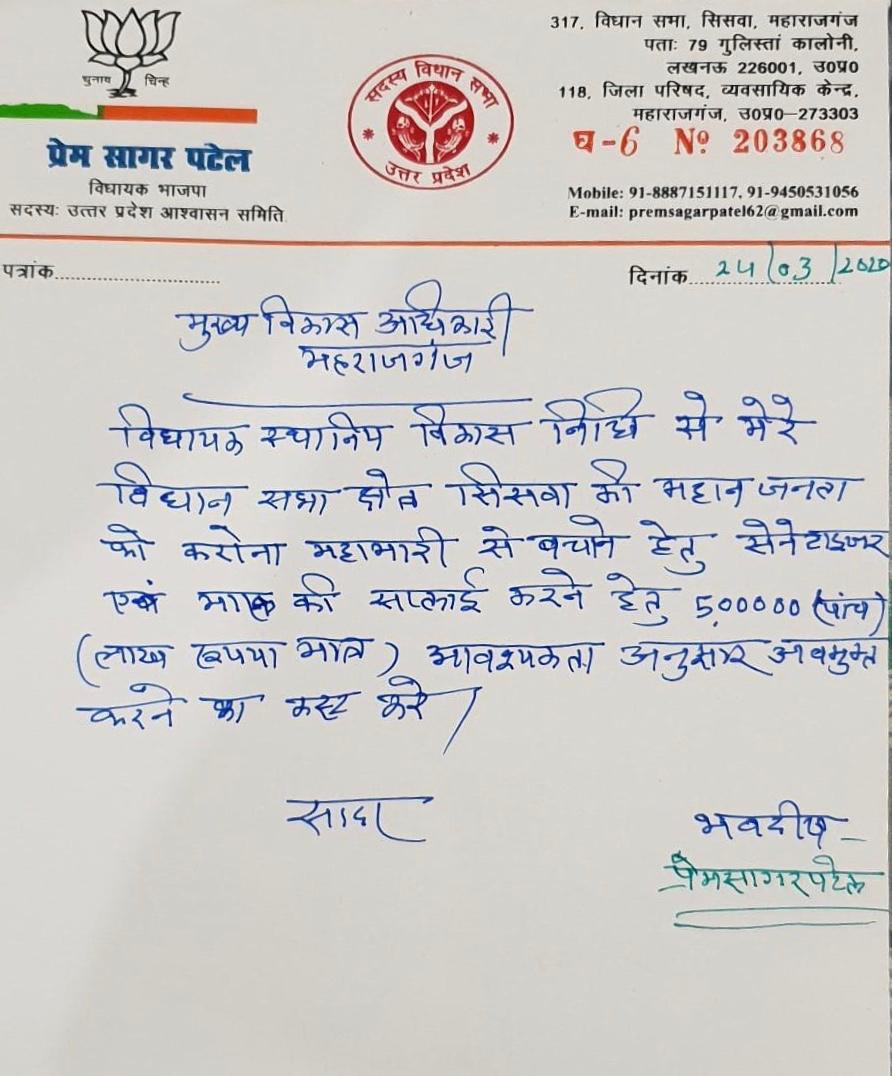 चुनाव चिन्ह
प्रेम सागर पटेल
विधायक भाजपा
सदस्यः उत्तर प्रदेश आश्वासन समिति
सदस्य विधान सभा
उत्तर प्रदेश
317, विधान सभा, सिसवा, महाराजगंज
पताः 79 गुलिस्तां कालोनी,
लखनऊ 226001, उ0प्र0
118, जिला परिषद, व्यवसायिक केन्द्र,
महाराजगंज, उ0प्र0—273303
घ-6 Nº 203868
Mobile: 91-8887151117, 91-9450531056
E-mail: premsagarpatel62@gmail.com
पत्रांक
दिनांक 24/03/2020
मुख्य विकास अधिकारी
महराजगंज
विधायक स्थानिय विकास निधि से मेरे
विधान सभा क्षेत्र सिसवा की महान जनता
को करोना महामारी से बचाने हेतु सेनेटाइजर
एवं मास्क की सप्लाई करने हेतु 500000 (पांच)
(लाख रूपया मात्र) आवश्यकता अनुसार अवमुक्त
करने का कस्ट करे।
सादर
भवदीय
प्रेमसागर पटेल